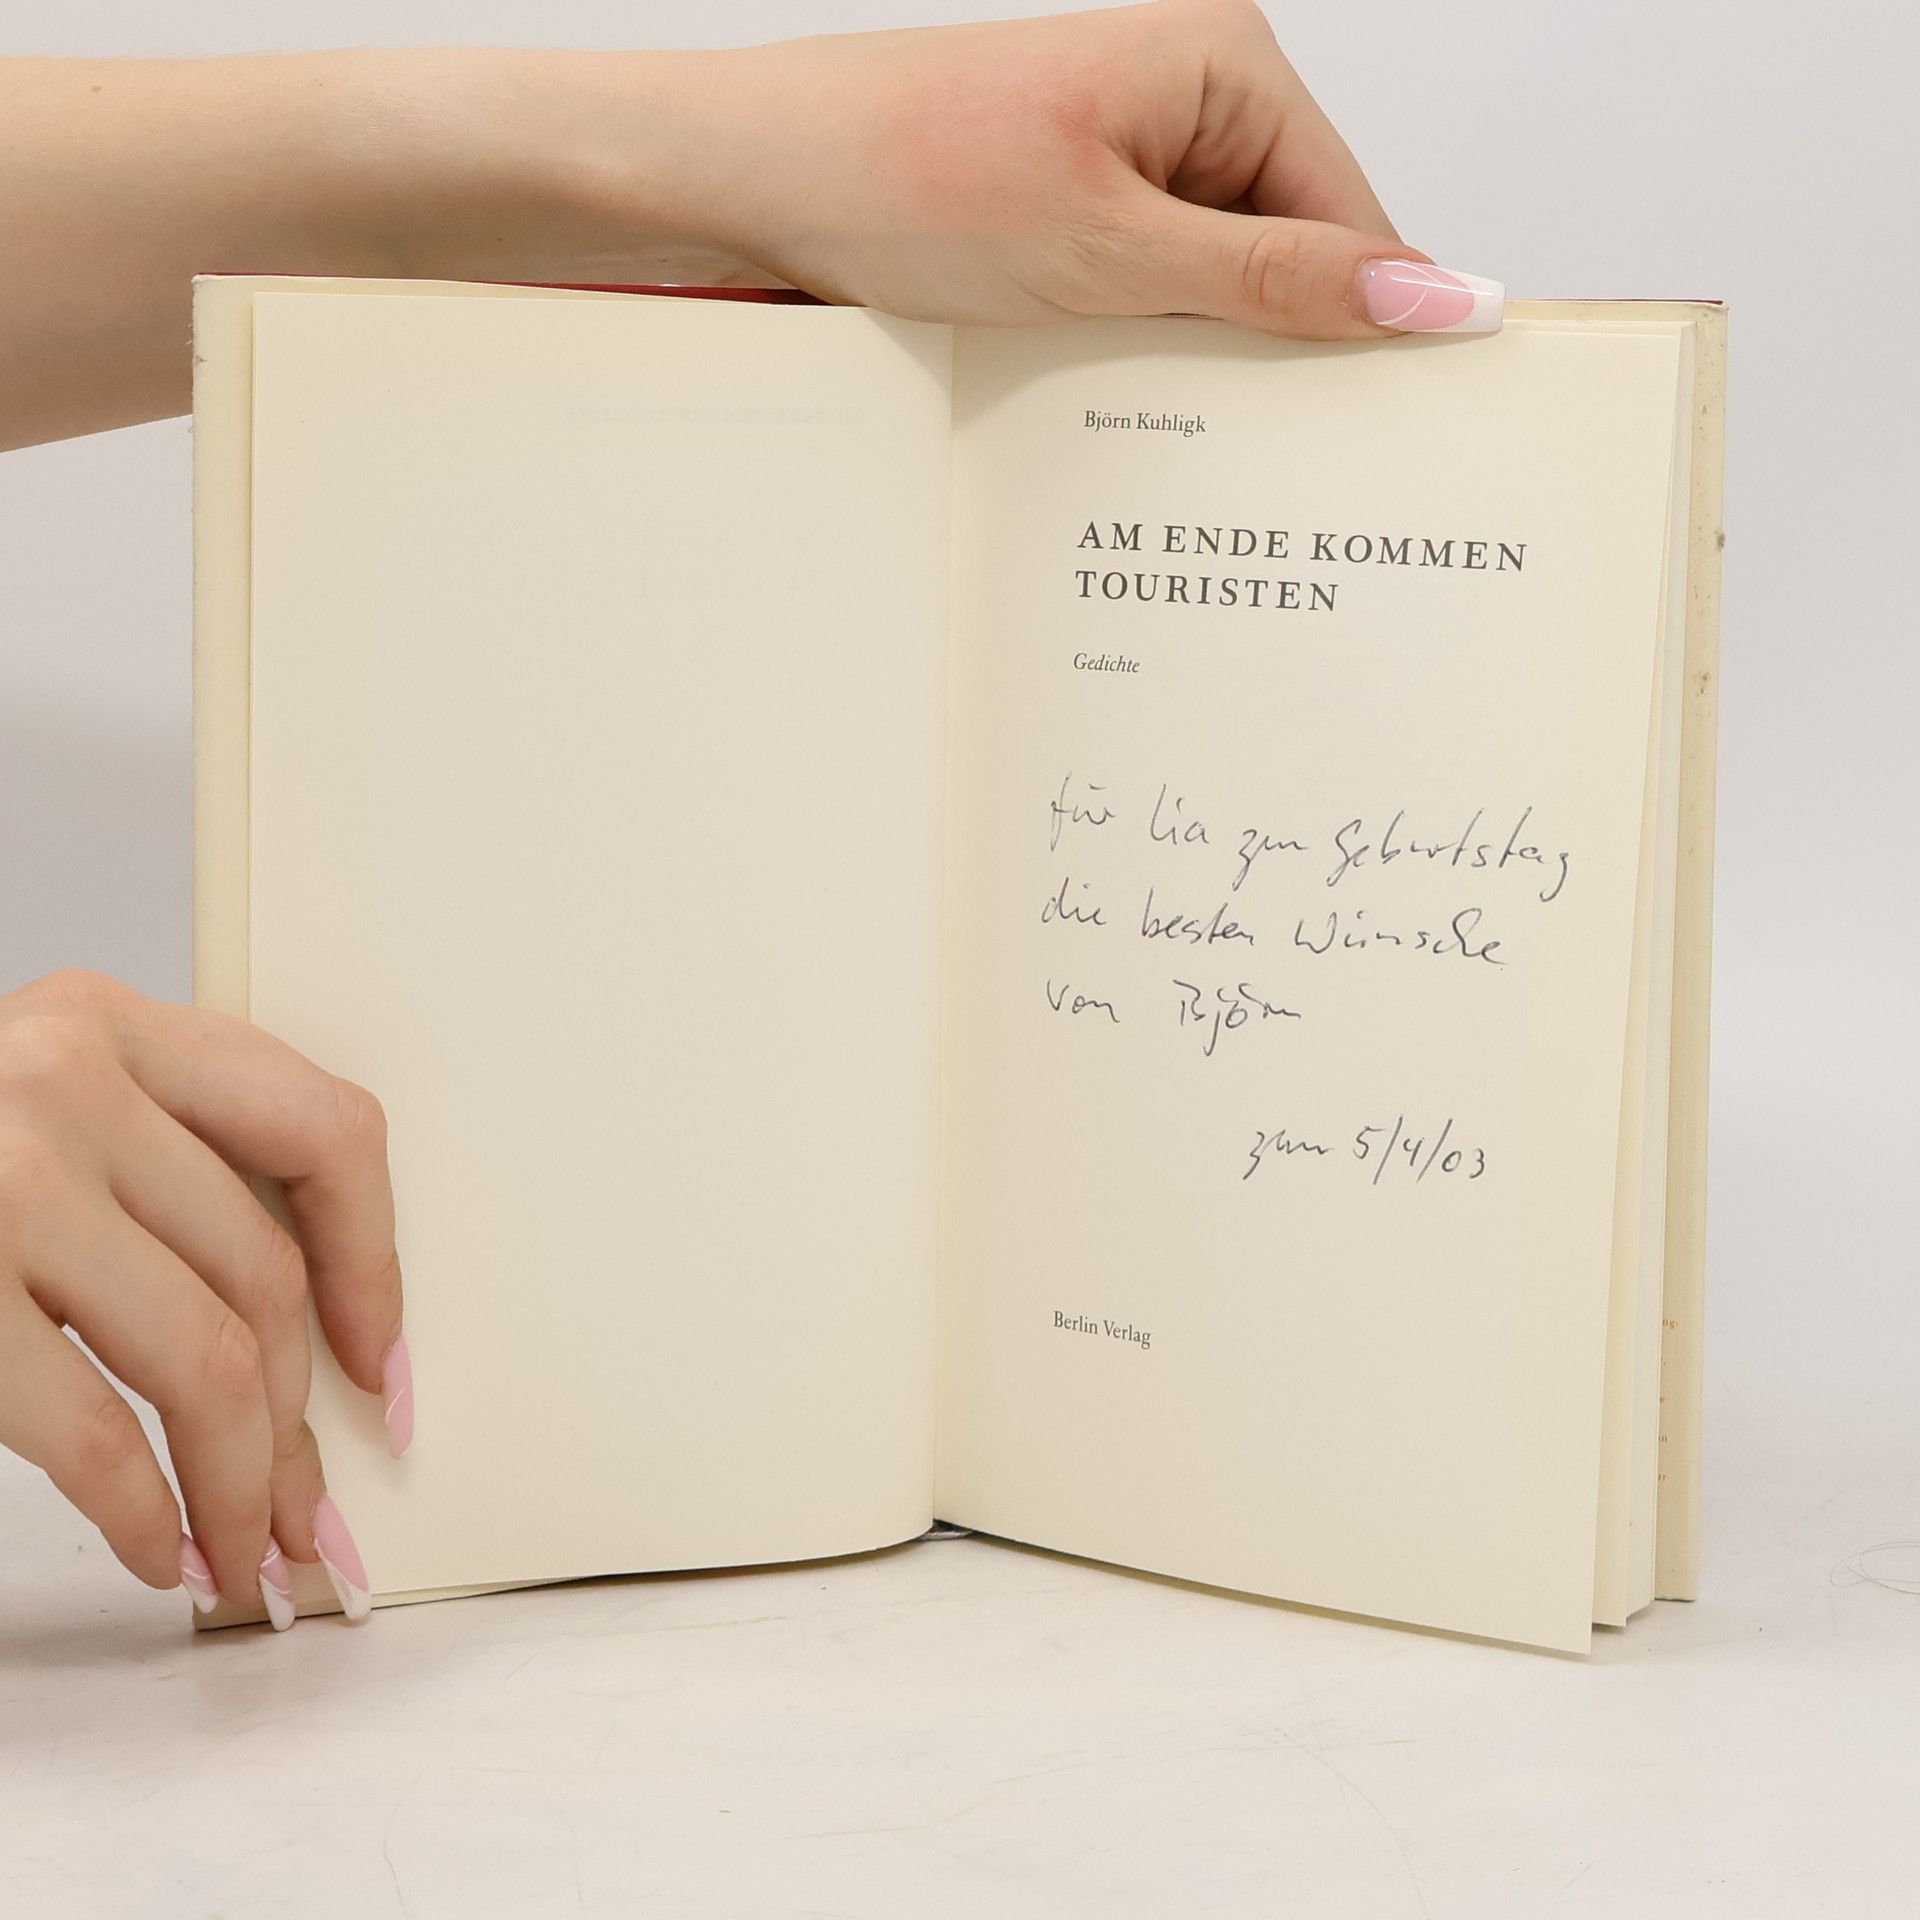 Björn Kuhligk
AM ENDE KOMMEN
TOURISTEN
Gedichte
für Lia zum Geburtstag
die besten Wünsche
von Björn
zum 5/4/03
Berlin Verlag